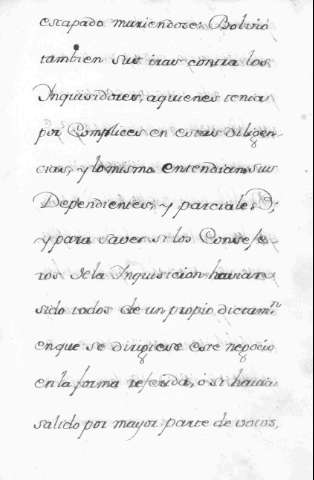 escapado muriendose: Bolvió
tambien sus iras contra los
Inquisidores, aquienes tenia
por Complices en estas diligen-
cias, y lo mismo entendian sus
Dependientes, y parciales;
y para saver si los Conseje-
ros de la Inquisicion havian
sido todos de un propio dictam.n
en que se dirigiese este negocio
en la forma referida, ó si havia
salido por mayor parte de votos,